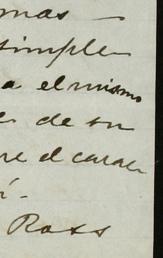 mas
simple
a el mismo
de su
re el carac
Ross